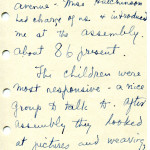 avenue. Miss Hutchinson
has charge of us & introduced
me at the assembly.
about 86 present.
The children were
most responsive - a nice
group to talk to. After
assembly they looked
at pictures and weaving